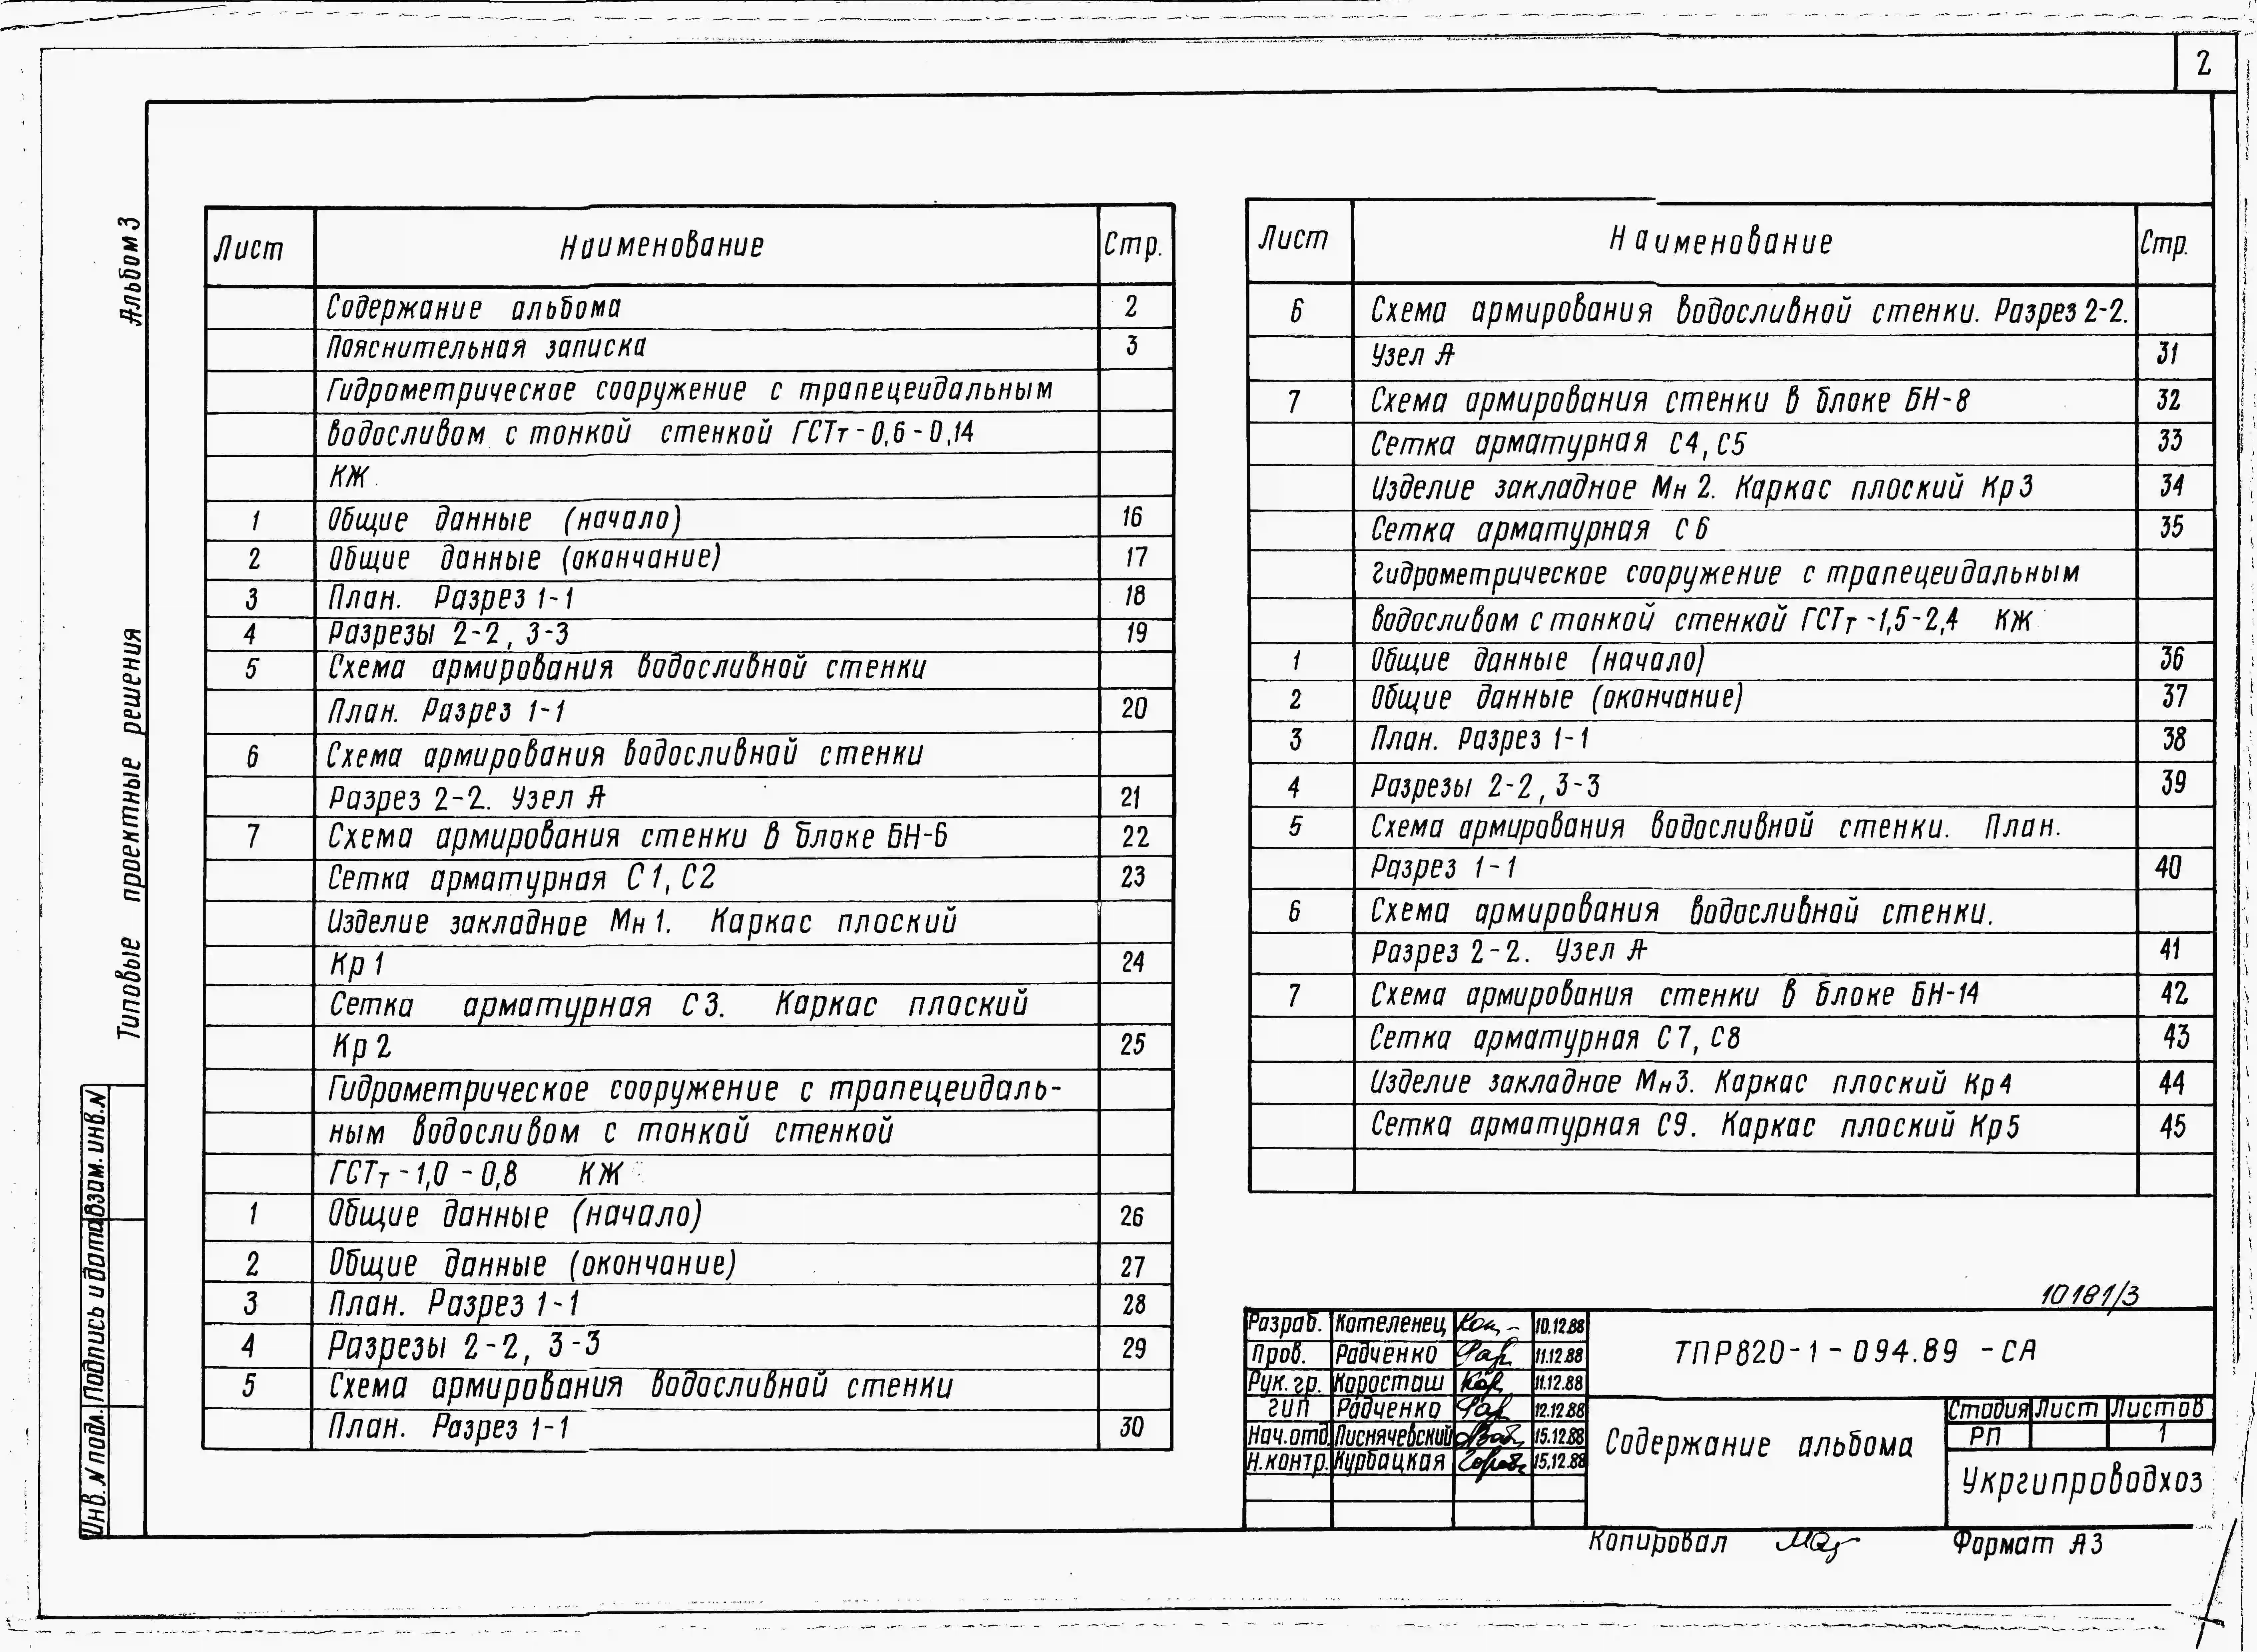 2
Альбом 3
Типовые проектные решения
Взам. инв. N
Подпись и дата
Инв. N подл.
Лист Наименование Стр.
Содержание альбома 2
Пояснительная записка 3
Гидрометрическое сооружение с трапецеидальным
водосливом с тонкой стенкой ГСТт-0,6-0,14
КЖ
1 Общие данные (начало) 16
2 Общие данные (окончание) 17
3 План. Разрез 1-1 18
4 Разрезы 2-2, 3-3 19
5 Схема армирования водосливной стенки
План. Разрез 1-1 20
6 Схема армирования водосливной стенки
Разрез 2-2. Узел А 21
7 Схема армирования стенки в блоке БН-6 22
Сетка арматурная С1, С2 23
Изделие закладное Мн 1. Каркас плоский
Кр 1 24
Сетка арматурная С3. Каркас плоский
Кр 2 25
Гидрометрическое сооружение с трапецеидаль-
ным водосливом с тонкой стенкой
ГСТт-1,0-0,8 КЖ
1 Общие данные (начало) 26
2 Общие данные (окончание) 27
3 План. Разрез 1-1 28
4 Разрезы 2-2, 3-3 29
5 Схема армирования водосливной стенки
План. Разрез 1-1 30
Лист Наименование Стр.
6 Схема армирования водосливной стенки. Разрез 2-2.
Узел А 31
7 Схема армирования стенки в блоке БН-8 32
Сетка арматурная С4, С5 33
Изделие закладное Мн 2. Каркас плоский Кр 3 34
Сетка арматурная С6 35
Гидрометрическое сооружение с трапецеидальным
водосливом с тонкой стенкой ГСТт-1,5-2,4 КЖ
1 Общие данные (начало) 36
2 Общие данные (окончание) 37
3 План. Разрез 1-1 38
4 Разрезы 2-2, 3-3 39
5 Схема армирования водосливной стенки. План.
Разрез 1-1 40
6 Схема армирования водосливной стенки.
Разрез 2-2. Узел А 41
7 Схема армирования стенки в блоке БН-14 42
Сетка арматурная С7, С8 43
Изделие закладное Мн3. Каркас плоский Кр4 44
Сетка арматурная С9. Каркас плоский Кр5 45
10181/3
Разраб. Котеленец 10.12.88
Пров. Радченко 11.12.88
Рук. гр. Коросташ 11.12.88
ГИП Радченко 12.12.88
Нач. отд. Лиснячевский 15.12.88
Н.контр. Курбацкая 15.12.88
ТПР820-1-094.89 -СА
Содержание альбома
Стадия Лист Листов
РП 1
Укргипроводхоз
Копировал Формат А3